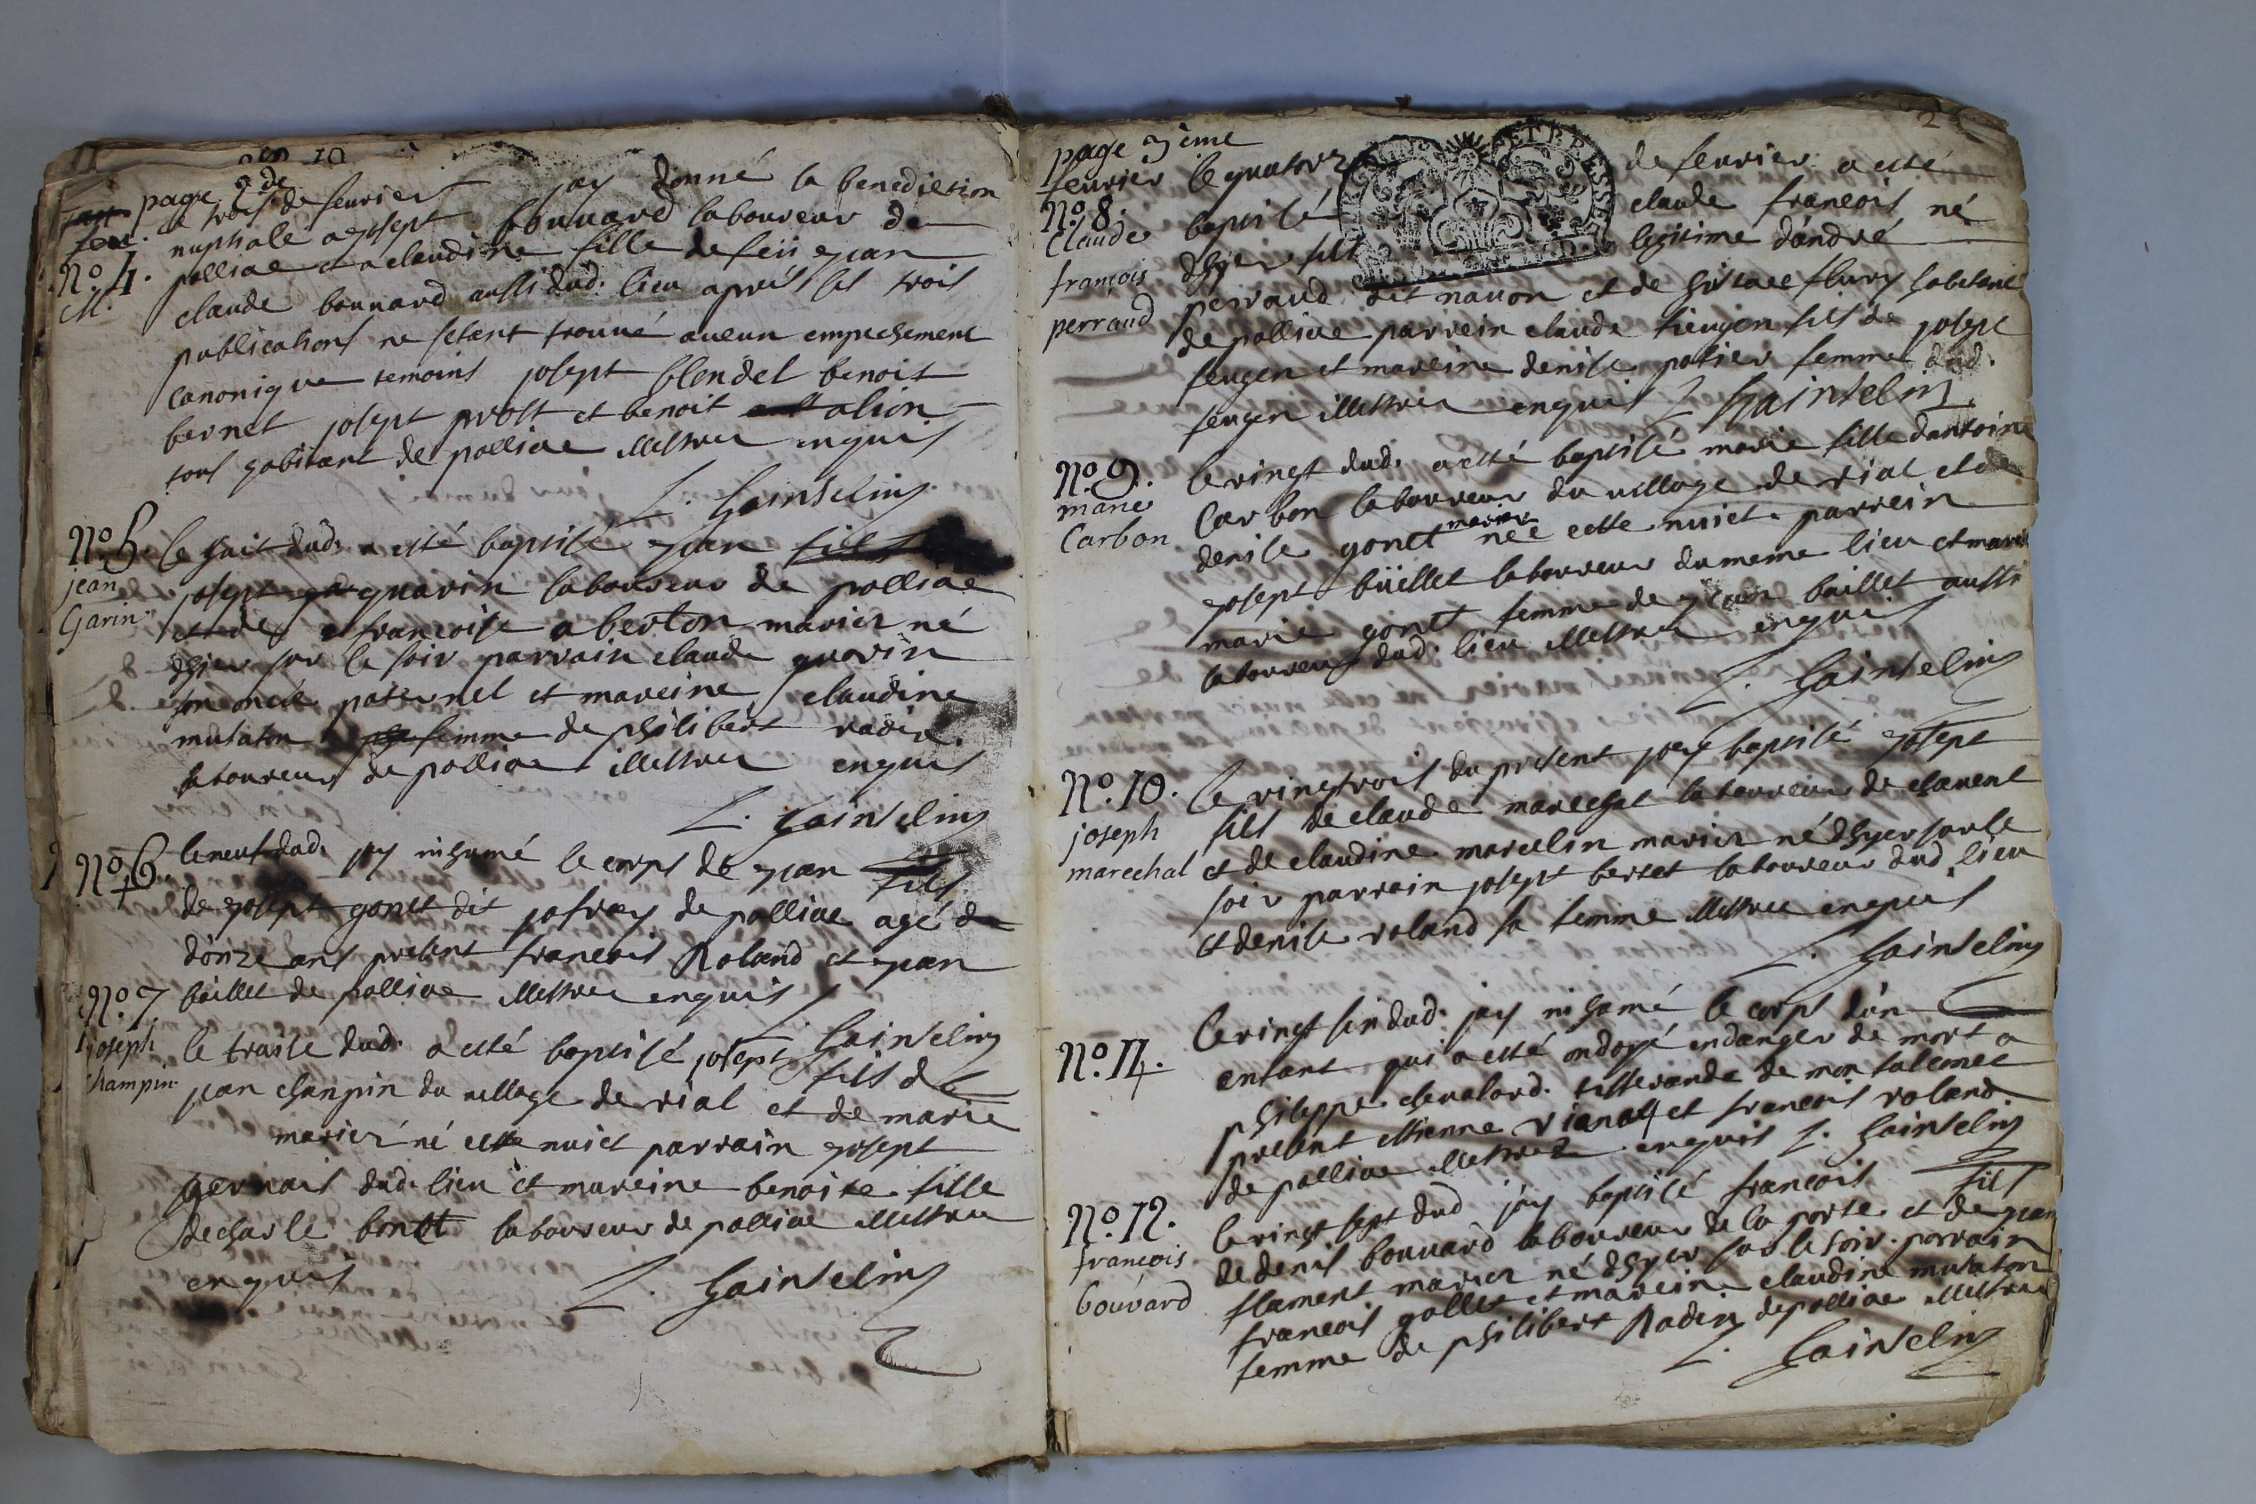 page 2de
le trois de feurier jay donné la benediction
nuptiale a josept bouuard laboureur de
polliac et a claudine fille de feü jean
claude bouuard aussi dud. lieu aprés les trois
publications ne sétant trouué aucun empechement
canonique temoins josept blondel benoit
bernet josept prost et benoit alion
tous habitant de polliac illettrez enquis
No. 4.
M.
L. Gainselin
No. 5.
jean
Garin
le huit dud. a esté baptisé jean fils
josept quarin laboureur de polliac
et de francoise aberton mariez né
dhier sur le soir parrain claude quarin
son oncle paternel et mareine claudine
mutaton femme de philibert radix
laboureur de polliac illettrez enquis
L. Gainselin
No. 6
le neuf dud. jay inhumé le corps de jean fils
de josept gonet dit jofray de polliac agé de
d'onze ans present francois Roland et jean
baillet de polliac illettrez enquis
L. Gainselin
No. 7
joseph
champin
le traise dud. a esté baptisé josept fils de
jean chanpin du village de rial et de marie
mariez né cette nuict parrain josept
geruais dud. lieu et mareine benoite fille
de charle bonet laboureur de polliac illettrez
enquis
L. Gainselin
page 3ème
feurier
No. 8.
claude
françois
perraud
le quatorz de feurier a esté
baptisé claude francois né
dhyer fils legitime d'andré
perraud dit nauon et de flury habitant
de polliac parrein claude feugen fils de josept
feugen et mareine denise potier femme dud.
feugen illettrez enquis L. Gainselin
No. 9.
marie
Carbon
le vingt dud. a esté baptisé marie fille dantoine
Carbon laboureur du uillage de rial et de
denise gonet mariez née cette nuict parrein
josept büillet laboureur du meme lieu et mareine
marie gonet femme de jean baillet aussi
laboureur dud. lieu illettrez enquis
L. Gainselin
No. 10.
joseph
marechal
le vingtrois du present jay baptisé josept
fils de claude marechal laboureur de
et de claudine marcelin mariez né dhyer sur le
soir parrain josept bertet laboureur dud. lieu
et denise roland sa femme illettrez enquis
L. Gainselin
No. 11.
le vingt sin dud. jay inhumé le corps dun
enfant qui a esté ondoyé en danger de mort a
philippe cheualard tisserande de mon
present ettienne vianat et francois roland
de polliac illettrez enquis L. Gainselin
No. 12.
francois
bouvard
le vingt sept dud jay baptisé francois fils
de denis bouuard laboureur de la porte et de jean
flament mariez né dhyer sur le soir parrain
francois gollet et mareine claudine mutaton
femme de philibert Radix de polliac illettrez
L. Gainselin